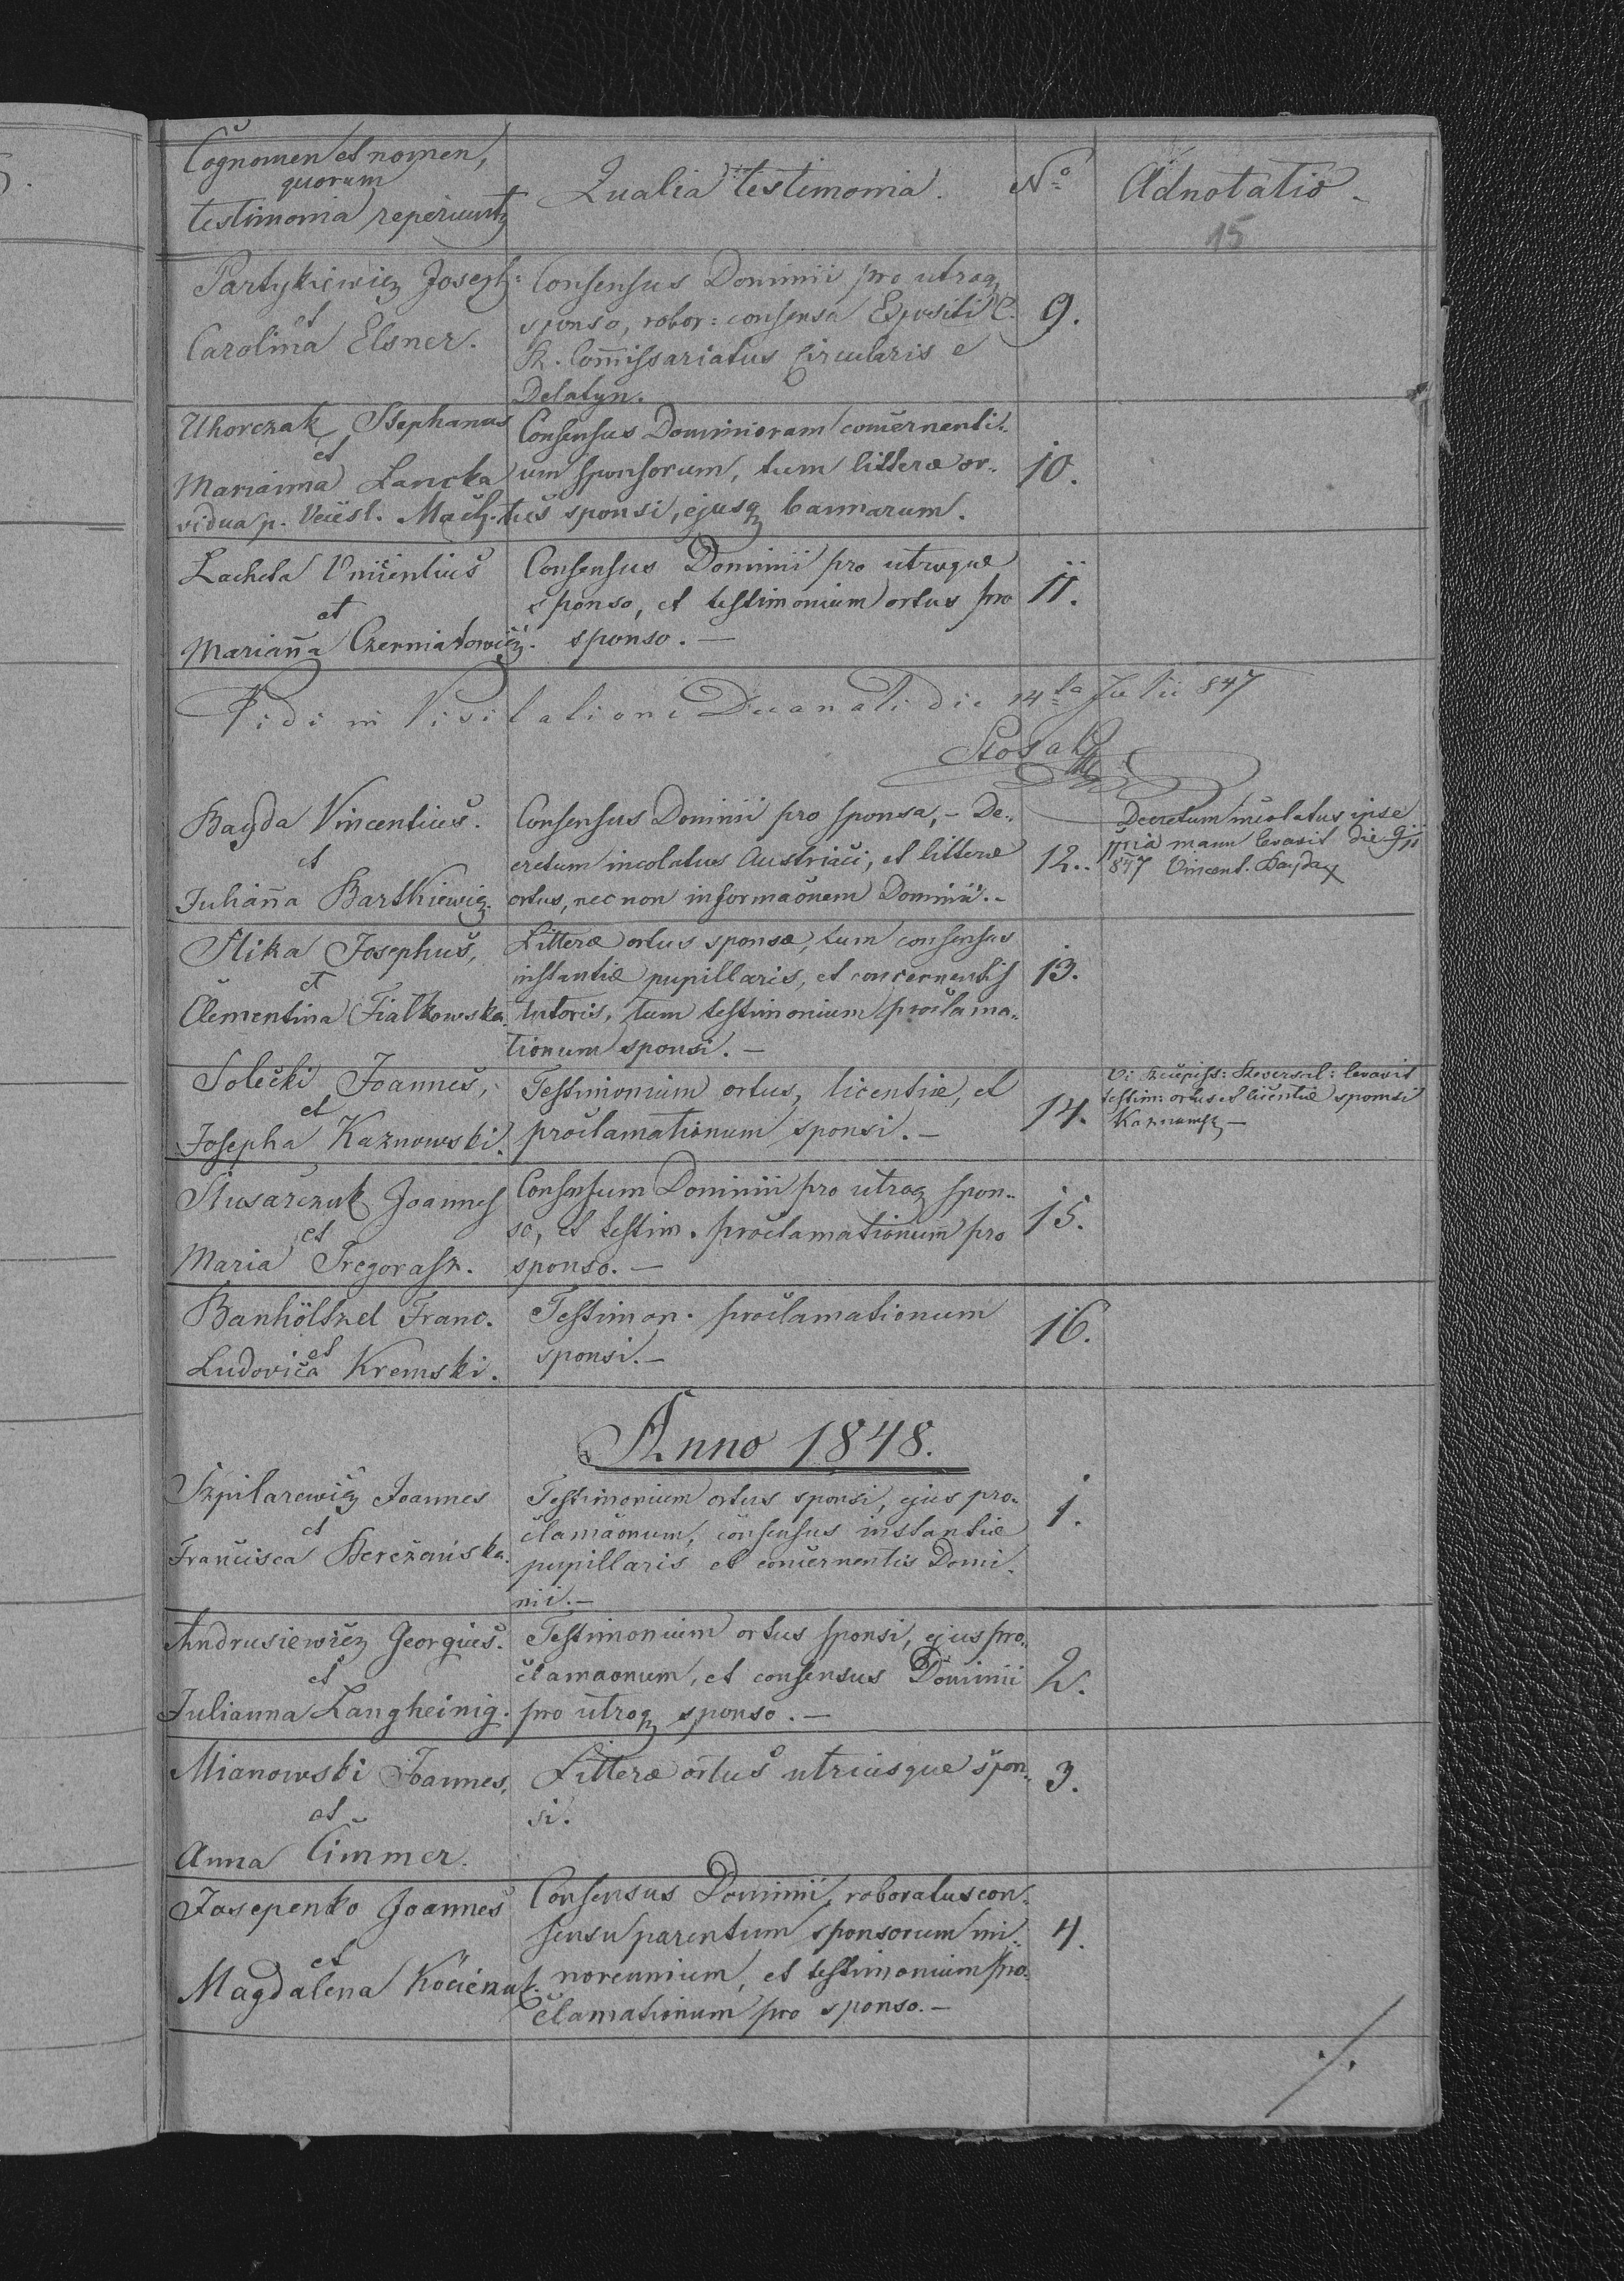 Cognomen et nomen,
quorum
testimonia reperiuntq
Qualia testimonia.
No
Adnotatio.
15
Partykiewicz Joseph:
et
Carolina Elsner.
Consensus Dominii pro utroq
sponso, robor: consensu Expositi C.
R. Commissariatus Circularis e
Delatyn.
9.
Uhorczak Stephanus
et
Marianna Lancka
vidua p. Venesl. Mach.
Consensus Dominioram concernenti-
um sponsorum, tum litteræ or-
tus sponsi, ejusq bannarum.
10.
Lacheta Vincentius
et
Marianna Czerniatowicz.
Consensus Dominii pro utroque
sponso, et testimonium ortus pro
sponso. —
11.
Vidi in Visitatione Decanali die 14ta Julii 847
Bayda Vincentius.
et
Julianna Bartkiewicz.
Consensus Dominii pro sponsa, – De-
cretum incolatus Austriaci, et litteræ
ortus, nec non informaonem Dominii. –
12.
Decretum incolatus ipse
manu levavit die
847 Vincent. Bayda
Slika Josephus,
et
Clementina Fialkowska.
Litteræ ortus sponsæ, tum consensus
instantiæ pupillaris, et concernentis
tutoris, tum testimonium proclama-
tionum sponsi. —
13.
Solecki Joannes,
et
Josepha Kaznowski.
Testimonium ortus, licentiæ, et
proclamationum sponsi. —
14.
Vi levavit
testim: ortus et licentiæ sponsi
Slusarczuk Joannes
et
Maria Gregorasz.
Consensum Dominii pro utroq spon-
so, et testim. proclamationum pro
sponso. —
15.
Banhöltzel Franc.
et
Ludovica Kremski.
Testimon. proclamationum
sponsi. —
16.
Anno 1848.
Szpilarewicz Joannes
et
Francisca Berezańska.
Testimonium ortus sponsi, ejus pro-
clamaonum, consensus instantiæ
pupillaris et concernentis Domi-
nii. —
1.
Andrusiewicz Georgius.
et
Julianna Langheinig.
Testimonium ortus sponsi, ejus pro-
clamaonum, et consensus Dominii
pro utroq sponso. —
2.
Mianowski Joannes,
et
Anna Cimmer.
Litteræ ortus utriusque spon-
si.
3.
Josepenko Joannes
et
Magdalena
Consensus Dominii, roboratus con-
sensu parentum sponsorum mi-
norennium, et testimonium pro-
clamationum pro sponso. —
4.
./.